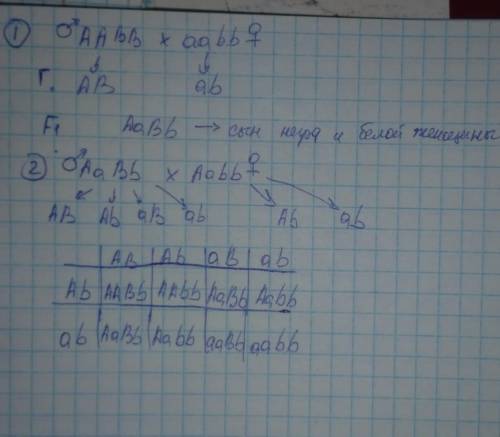 ① ♂AABB x aabb♀
Г. AB ab
F1 AaBb → сын негра и белой женщины
② ♂AaBb x Aabb♀
AB Ab aB ab Ab ab
AB Ab aB ab
Ab AABb AAbb AaBb Aabb
ab AaBb Aabb aaBb aabb